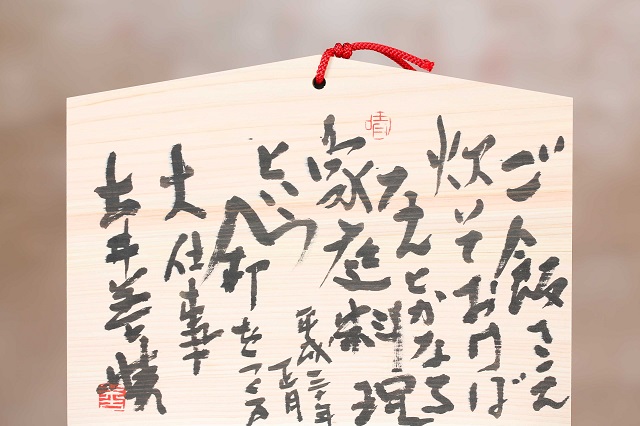 ご飯さえ
炊いておけば
なんとかなる
家庭料理
という
人間をつくる
大仕事
平成三十年
正月
土井善晴